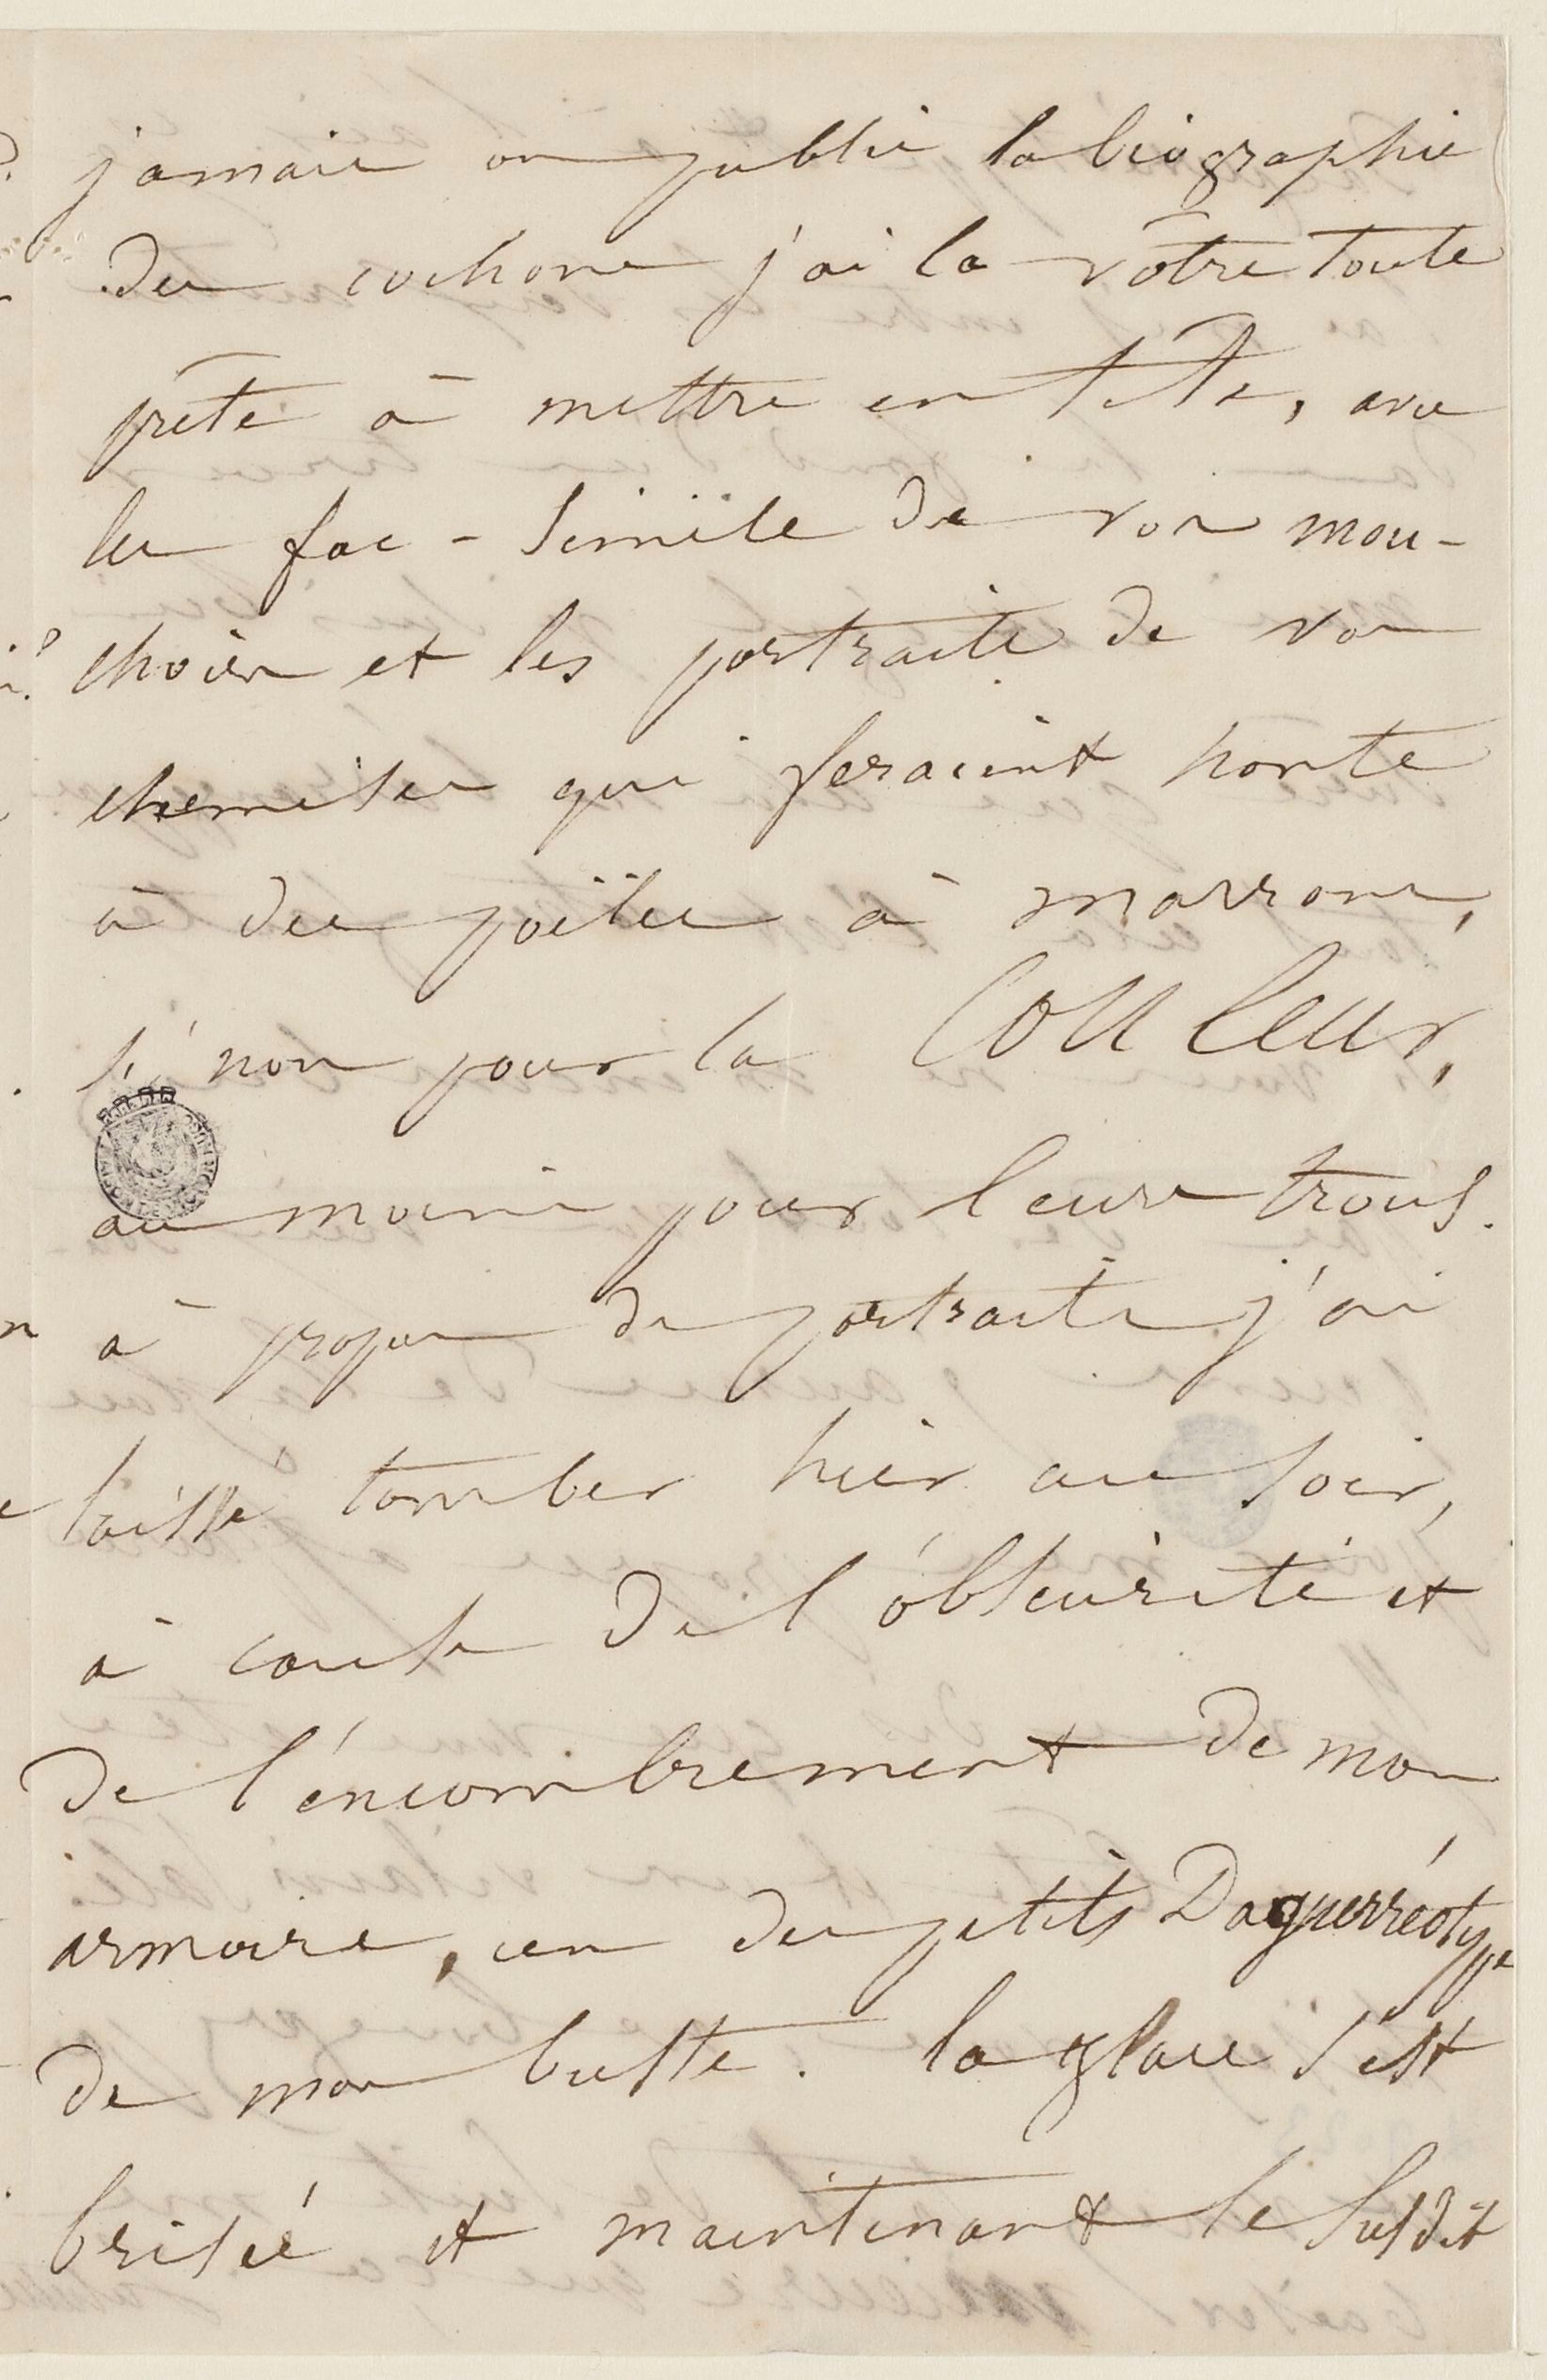 jamais on publie la biographie
des cochons j'ai la vôtre toute
prête à mettre en tête, avec
les fac-simile de vos mou-
choirs et les portraits de vos
chemises qui feraient honte
à des poëles à marrons,
si non pour la couleur,
au moins pour leurs trous.
à propos de portraits j'ai
laissé tomber hier au soir,
à cause de l'obscurité et
de l'encombrement de mon
armoire, un des petits Daguerréotype
de mon buste. la glace s'est
brisée et maintenant le susdit